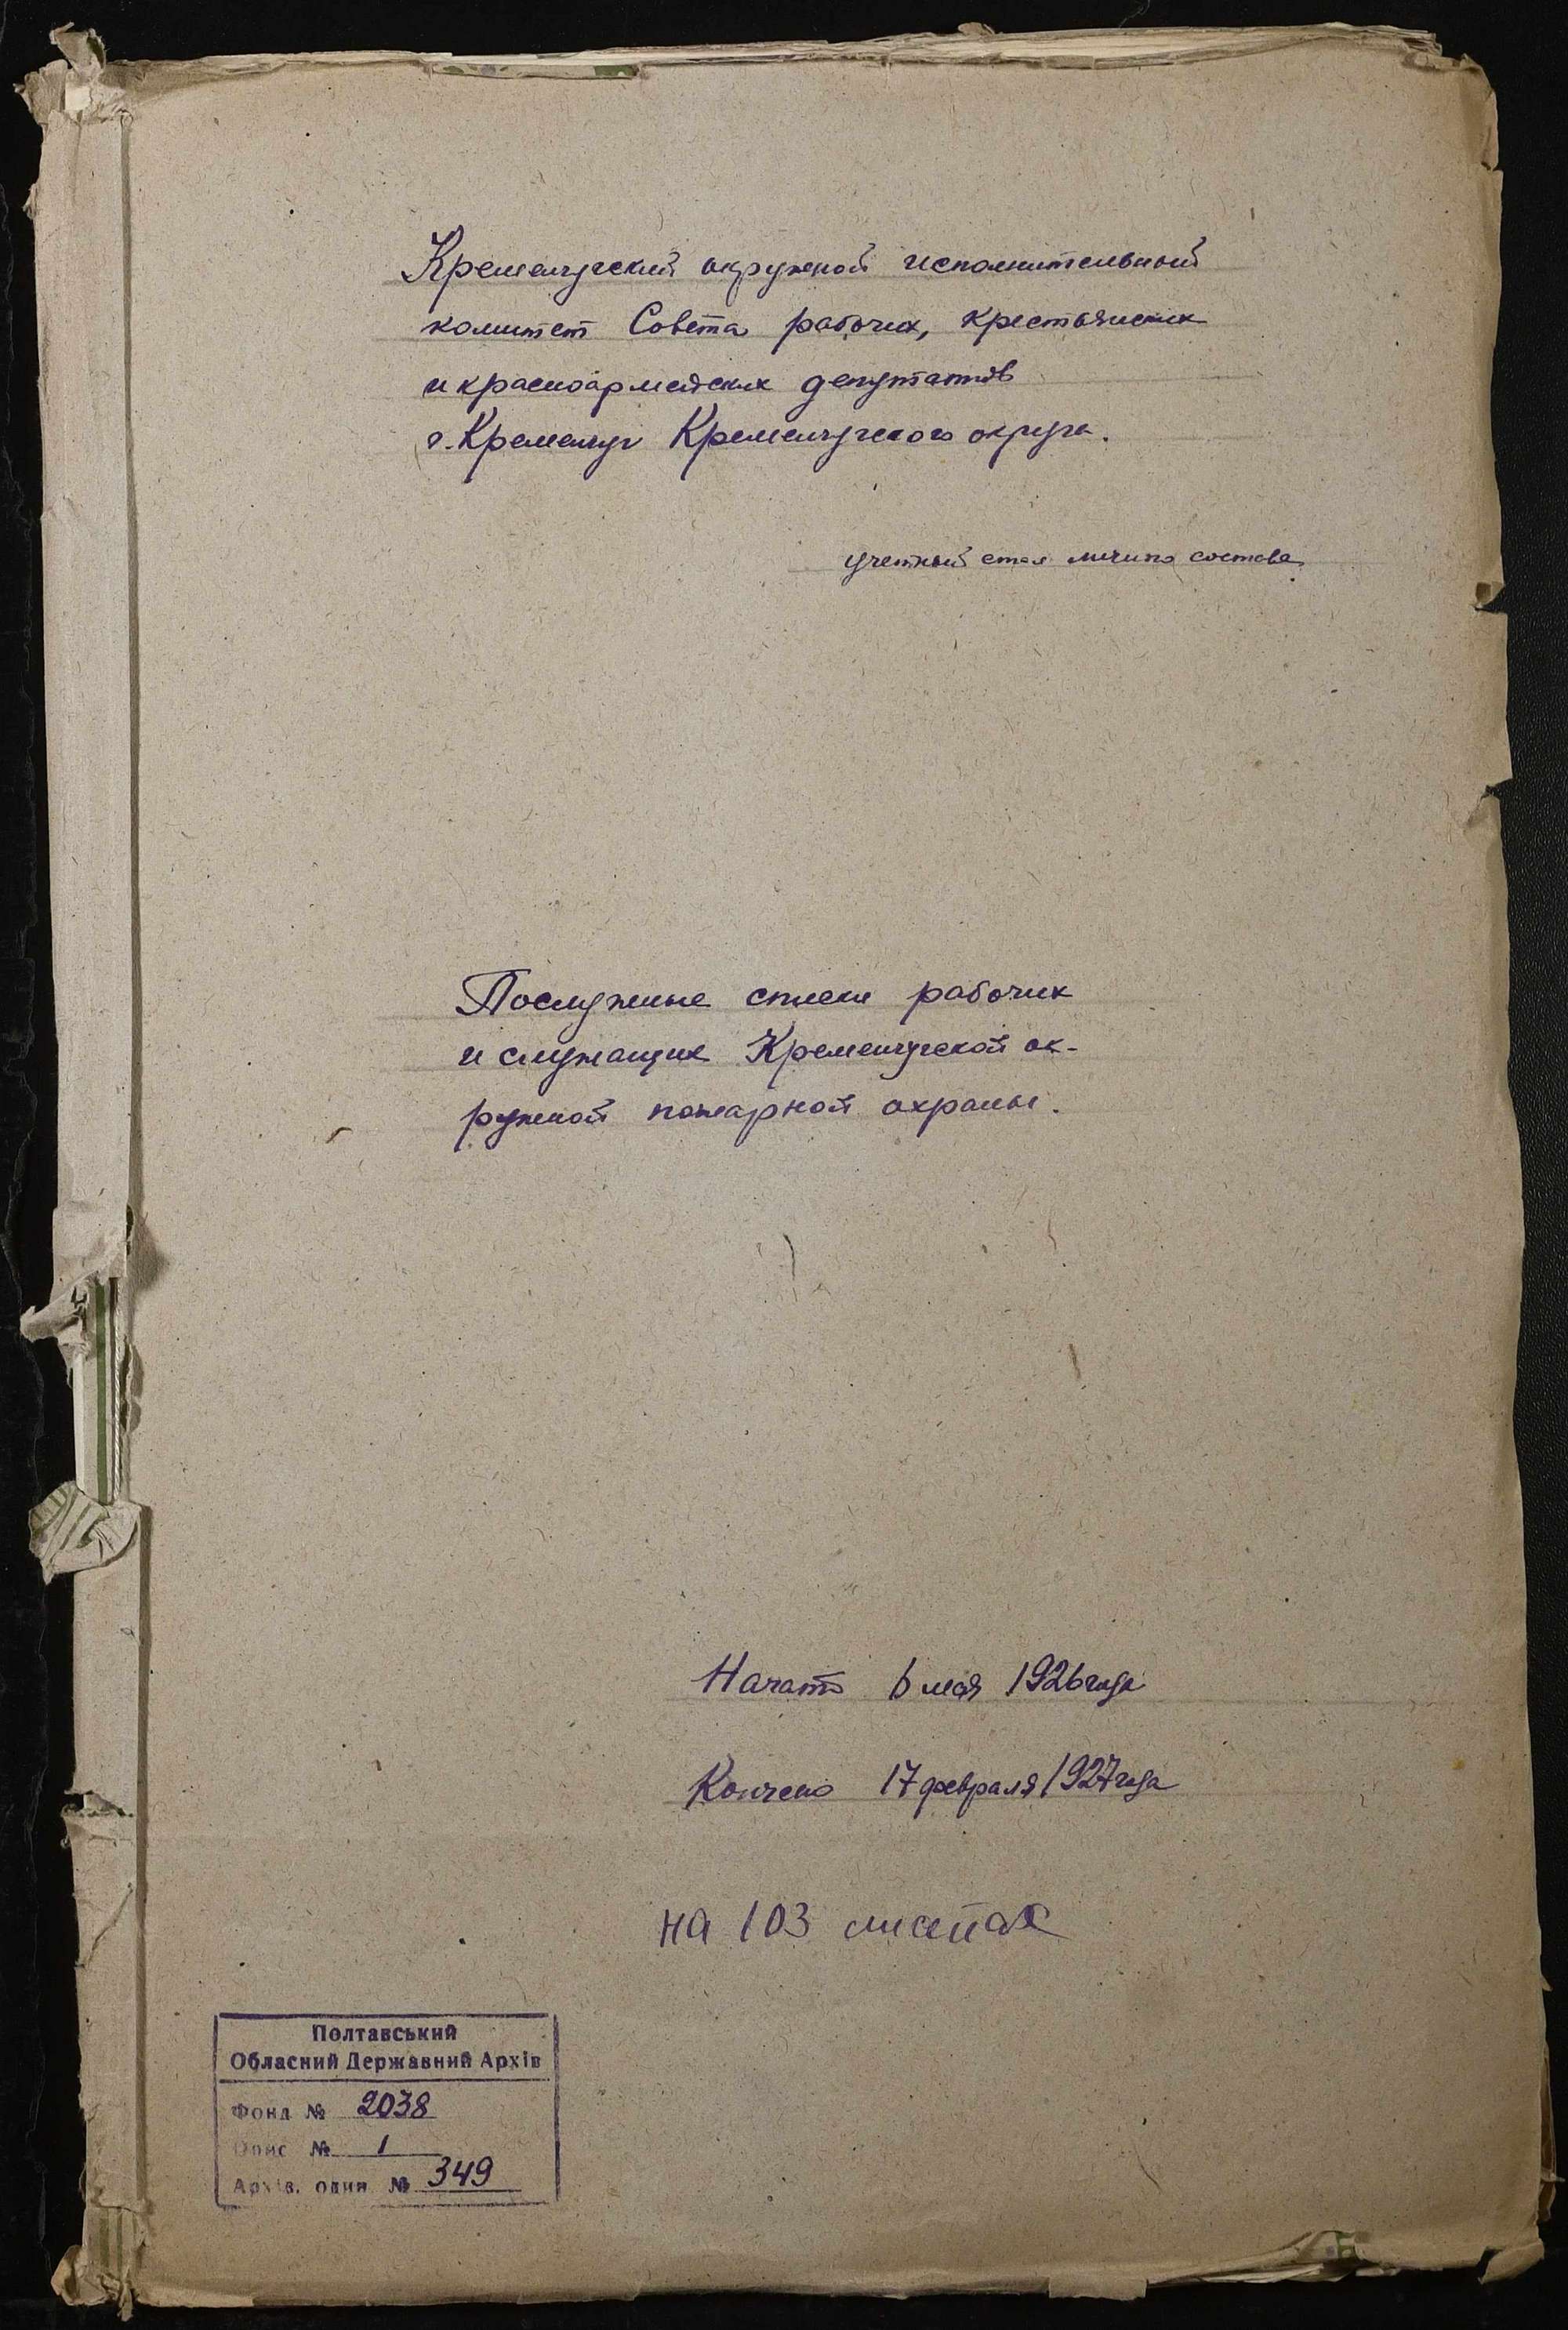 Кременчугский окружной исполнительный
комитет Совета рабочих, крестьянских
и красноармейских депутатов
г. Кременчуг Кременчугского округа.
учетный стол личного состава
Послужные списки рабочих
и служащих Кременчугской ок-
ружной пожарной охраны.
Начато 6 мая 1926 года
Кончено 17 февраля 1927 года
на 103 листах
Полтавський
Обласний Державний Архів
Фонд № 2038
Опис № 1
Архів. один № 349